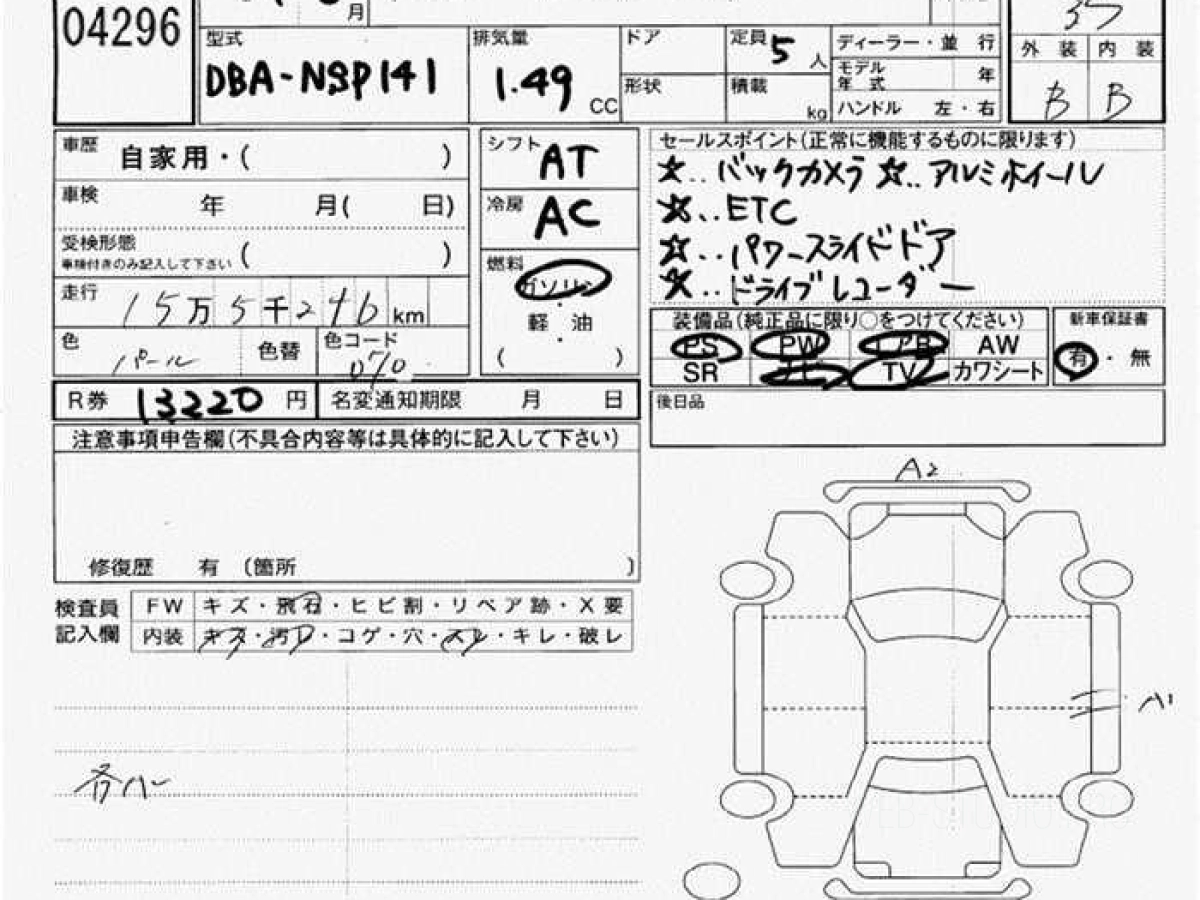 04296
月
型式
DBA-NSP141
排気量
1.49
CC
ドア
形状
定員 5 人
積載
kg
ディーラー・並 行
モデル
年 式
年
ハンドル 左・右
外 装
内 装
B
B
車歴
自家用・( )
車検
年 月( 日)
受検形態
車検付きのみ記入して下さい
( )
走行
15万5千246km
色
パール
色替
色コード
070
シフト
AT
冷房
AC
燃料
ガソリン
・
軽 油
・
( )
セールスポイント(正常に機能するものに限ります)
☆‥バックカメラ ☆‥アルミホイール
☆‥ETC
☆‥パワースライドドア
☆‥ドライブレコーダー
装備品(純正品に限り○をつけてください)
PS PW エアB AW
SR ナビ TV カワシート
新車保証書
有・無
R券 13220 円
名変通知期限 月 日
後日品
注意事項申告欄(不具合内容等は具体的に記入して下さい)
修復歴 有 (箇所 )
検査員
記入欄
FW キズ・飛石・ヒビ割・リペア跡・X要
内装 キズ・汚レ・コゲ・穴・スレ・キレ・破レ
A2
A1